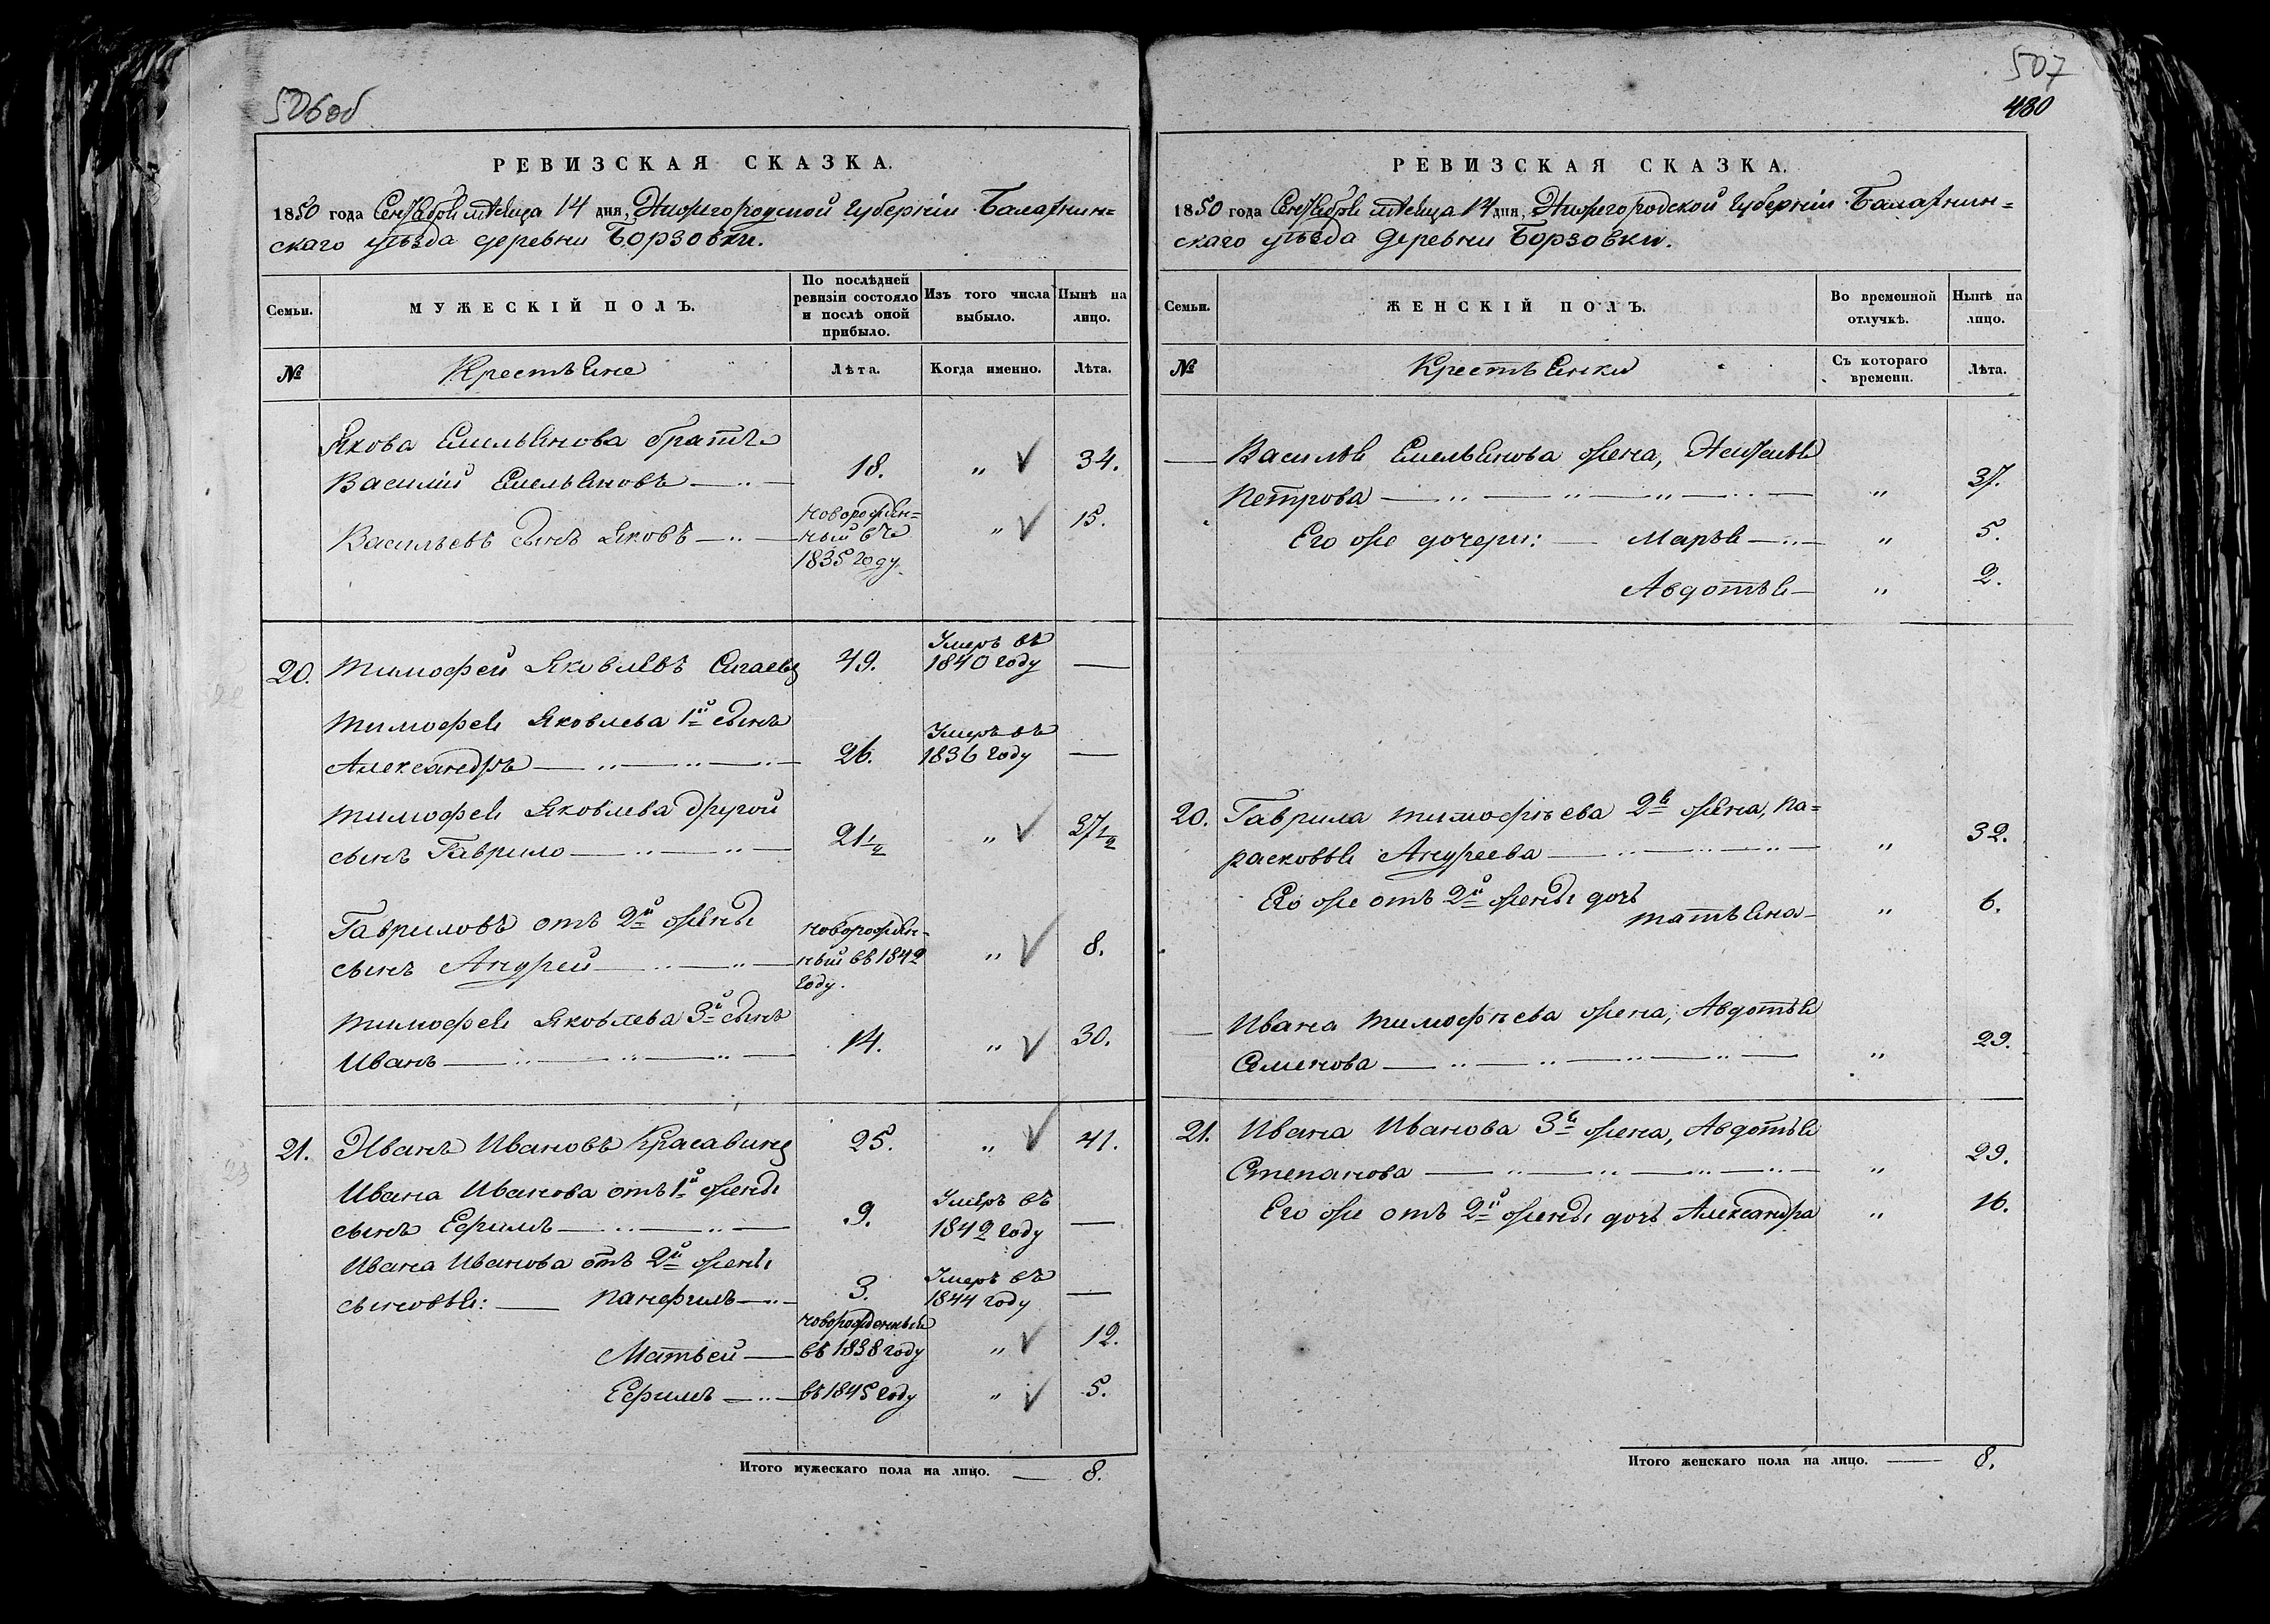 506об
РЕВИЗСКАЯ СКАЗКА.
1850 года Сентября мѣсяца 14 дня, Нижегородской губерніи Балахнин=
скаго уѣзда деревни Борзовки.
Семьи.
МУЖЕСКІЙ ПОЛЪ.
По послѣдней
ревизіи состояло
и послѣ оной
прибыло.
Изъ того числа
выбыло.
Нынѣ на
лицо.
№
Крестьяне
Лѣта.
Когда именно.
Лѣта.
Якова Емельянова братъ
Василій Емельяновъ 18. " 34.
Васильевъ сынъ Яковъ
новорожден=
ный въ
1835 году
" 15.
20. Тимофей Яковлевъ 49.
Умеръ въ
1840 году
—
Тимофея Яковлева 1й сынъ
Александръ 26.
Умеръ въ
1836 году
—
Тимофея Яковлева другой
сынъ Гаврило 21½ " 37½
Гавриловъ отъ 2й жены
сынъ Андрей
новорожден=
ный въ 1842
году.
" 8.
Тимофея Яковлева 3й сынъ
Иванъ 14. " 30.
21. Иванъ Ивановъ Красавинъ 25. " 41.
Ивана Иванова отъ 1й жены
сынъ Ефимъ 9.
Умеръ въ
1842 году
—
Ивана Иванова отъ 2й жены
сыновья: Панфилъ 3.
Умеръ въ
1844 году
—
новорожденный
Матвей въ 1838 году " 12.
Ефимъ въ 1845 году " 5.
Итого мужескаго пола на лицо. — 8.
507
480
РЕВИЗСКАЯ СКАЗКА.
1850 года Сентября мѣсяца 14 дня, Нижегородской губерніи Балахнин=
скаго уѣзда деревни Борзовки.
Семьи.
ЖЕНСКІЙ ПОЛЪ.
Во временной
отлучкѣ.
Нынѣ на
лицо.
№
Крестьянки
Съ котораго
времени.
Лѣта.
— Василья Емельянова жена,
Петрова " 37.
Его же дочери: — Марья " 5.
Авдотья " 2.
20. Гаврила Тимофѣева 2я жена, Па=
расковья Андреева " 32.
Его же отъ 2й жены дочь
Татьяна " 6.
— Ивана Тимофѣева жена, Авдотья
Семенова " 29.
21. Ивана Иванова 3я жена, Авдотья
Степанова " 29.
Его же отъ 2й жены дочь Александра " 16.
Итого женскаго пола на лицо. — 8.